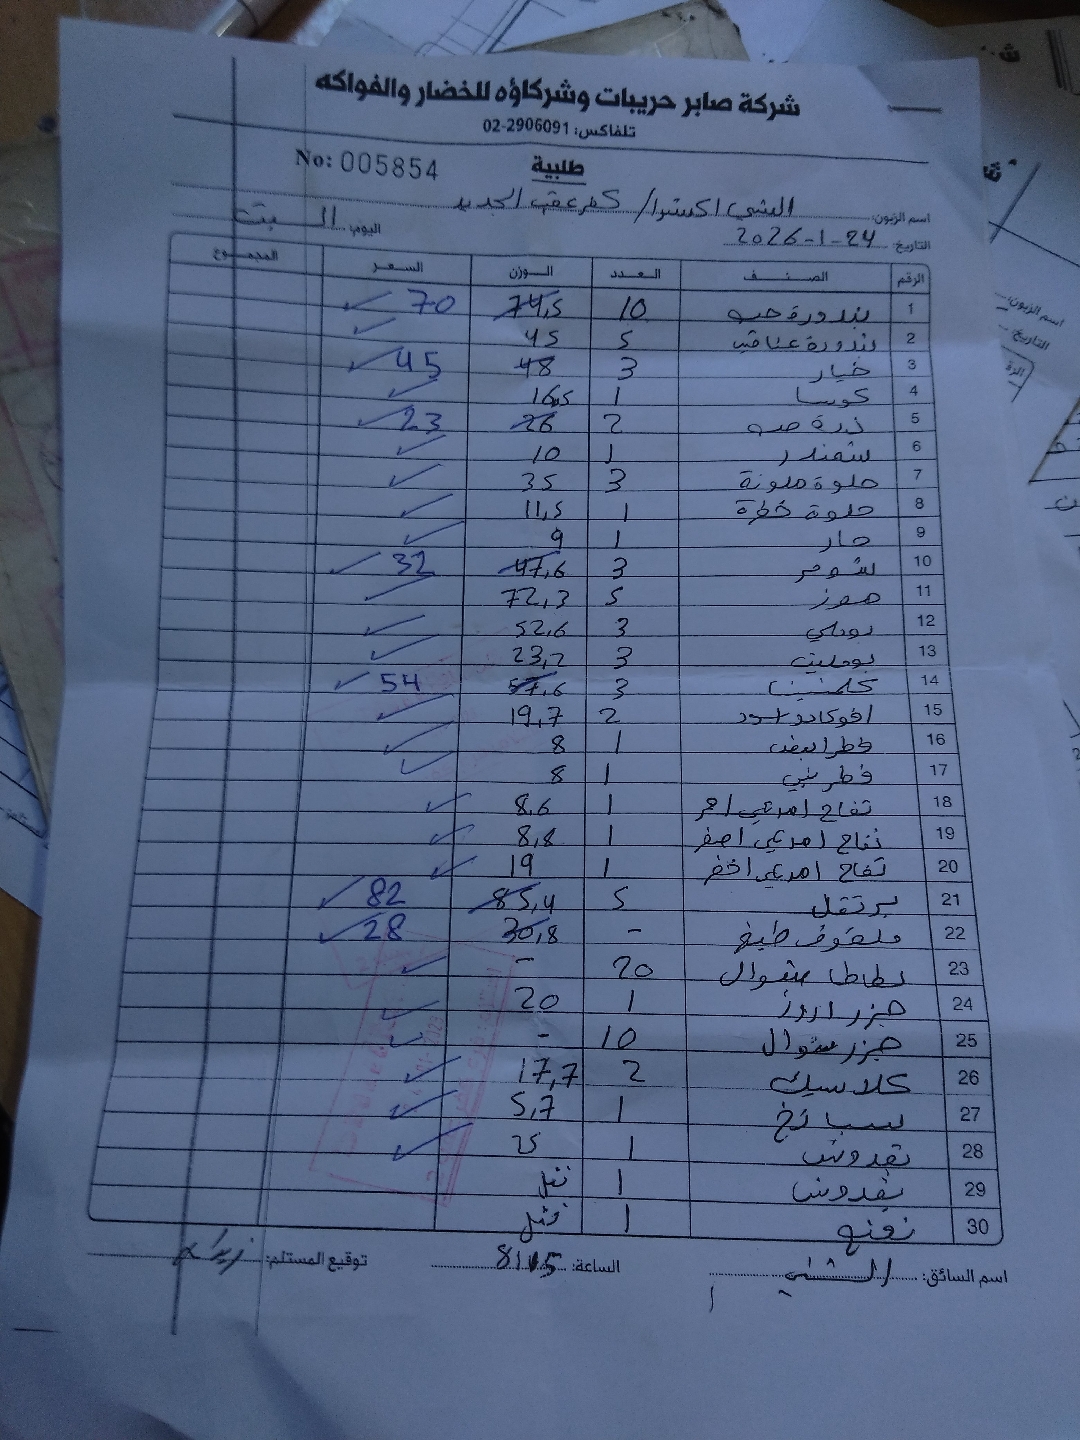 شركة صابر حريبات وشركاؤه للخضار والفواكه
تلفاكس: 02-2906091
طلبية
No: 005854
اسم الزبون: الشني اكسترا / كفر عقب الجديد
التاريخ: 24-1-2026 اليوم: السبت
الرقم الصنف العدد الوزن السعر المجموع
1 بندورة حب 10 74,5 70
2 بندورة عناقيد 5 45
3 خيار 3 48 45
4 كوسا 1 16,5
5 ذرة حب 2 26 23
6 شمندر 1 10
7 حلوة ملونة 3 35
8 حلوة خظرة 1 11,5
9 حار 1 9
10 شومر 3 47,6 32
11 موز 5 72,3
12 بوملي 3 52,6
13 3 23,2
14 كلمنتينا 3 57,6 54
15 افوكادو اسود 2 19,7
16 فطر ابيض 1 8
17 فطر بني 1 8
18 تفاح امريكي احمر 1 8,6
19 تفاح امريكي اصفر 1 8,8
20 تفاح امريكي اخظر 1 19
21 برتقال 5 85,4 82
22 ملفوف طبيخ - 30,8 28
23 بطاطا شوال 20 -
24 جزر 1 20
25 جزر شوال 10 -
26 كلاسيك 2 17,7
27 سبانخ 1 5,7
28 بقدونس 1 25
29 بقدونس 1
30 نعنع 1
اسم السائق: الساعة: 8:15 توقيع المستلم: